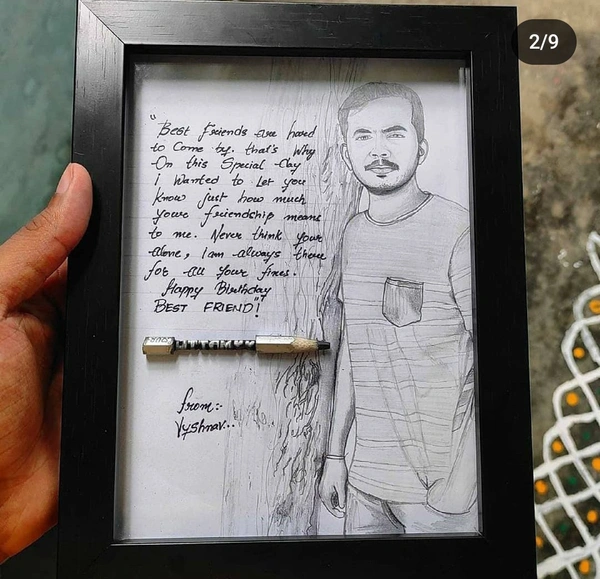 2/9
"Best Friends are hard
to Come by. that's Why
On this Special day
I Wanted to Let you
Know just how much
your friendship means
to me. Never think your
alone, I am always there
for all your fixes.
Happy Birthday
BEST FRIEND!"
from:-
Vyshnav..